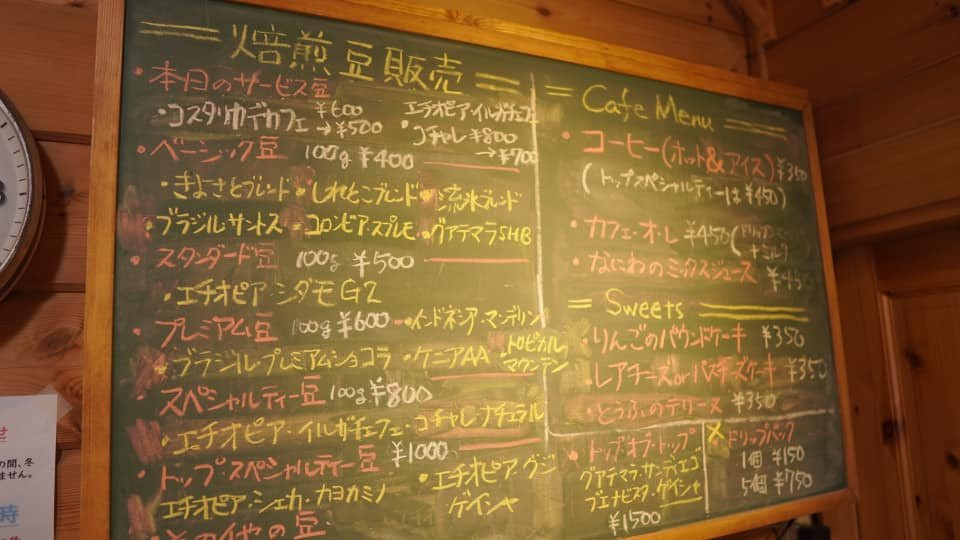 ＝焙煎豆販売＝
・本日のサービス豆
・コスタリカデカフェ ¥600
→¥500
エチオピア・イルガチェフェ
・コチャレ ¥800
→¥700
・ベーシック豆 100g ¥400
・きよさとブレンド ・しれとこブレンド ・流氷ブレンド
・ブラジルサントス ・コロンビア・スプレモ ・グアテマラSHB
・スタンダード豆 100g ¥500
・エチオピア シダモG2
・プレミアム豆 100g ¥600 ・インドネシア・マンデリン
・ブラジルプレミアムショコラ ・ケニアAA ・トロピカル
マウンテン
・スペシャルティー豆 100g ¥800
・エチオピア・イルガチェフェ・コチャレナチュラル
・トップスペシャルティー豆 ¥1000
エチオピア・シェカ・カヨカミノ
・エチオピア・グジ
ゲイシャ
・その他の豆
＝Cafe Menu＝
・コーヒー(ホット&アイス) ¥350
(トップスペシャルティーは¥450)
・カフェ・オ・レ ¥450
・なにわのミックスジュース ¥450
＝Sweets＝
・りんごのパウンドケーキ ¥350
・レアチーズorバスチーズケーキ ¥350
・とうふのテリーヌ ¥350
・トップ・オブ・トップ
グアテマラ・サンディエゴ
ブエナビスタ・ゲイシャ
¥1500
ドリップパック
1個 ¥150
5個 ¥750
せ
の間、冬
ません。
時